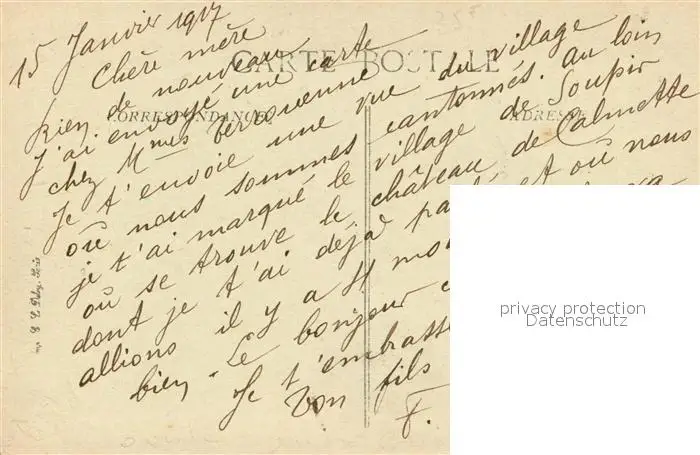 15 Janvier 1917
Chère mère
CARTE POSTALE
CORRESPONDANCE
ADRESSE
Rien de nouveau
J'ai envoyé une carte
chez Mmes
Je t'envoie une vue du village
où nous sommes cantonnés. Au loin
je t'ai marqué le village de Soupir
où se trouve le château de Calmette
dont je t'ai déjà parlé et où nous
allions il y a
bien. Le bonjour
Je t'embrasse
Ton fils
F.
privacy protection
Datenschutz